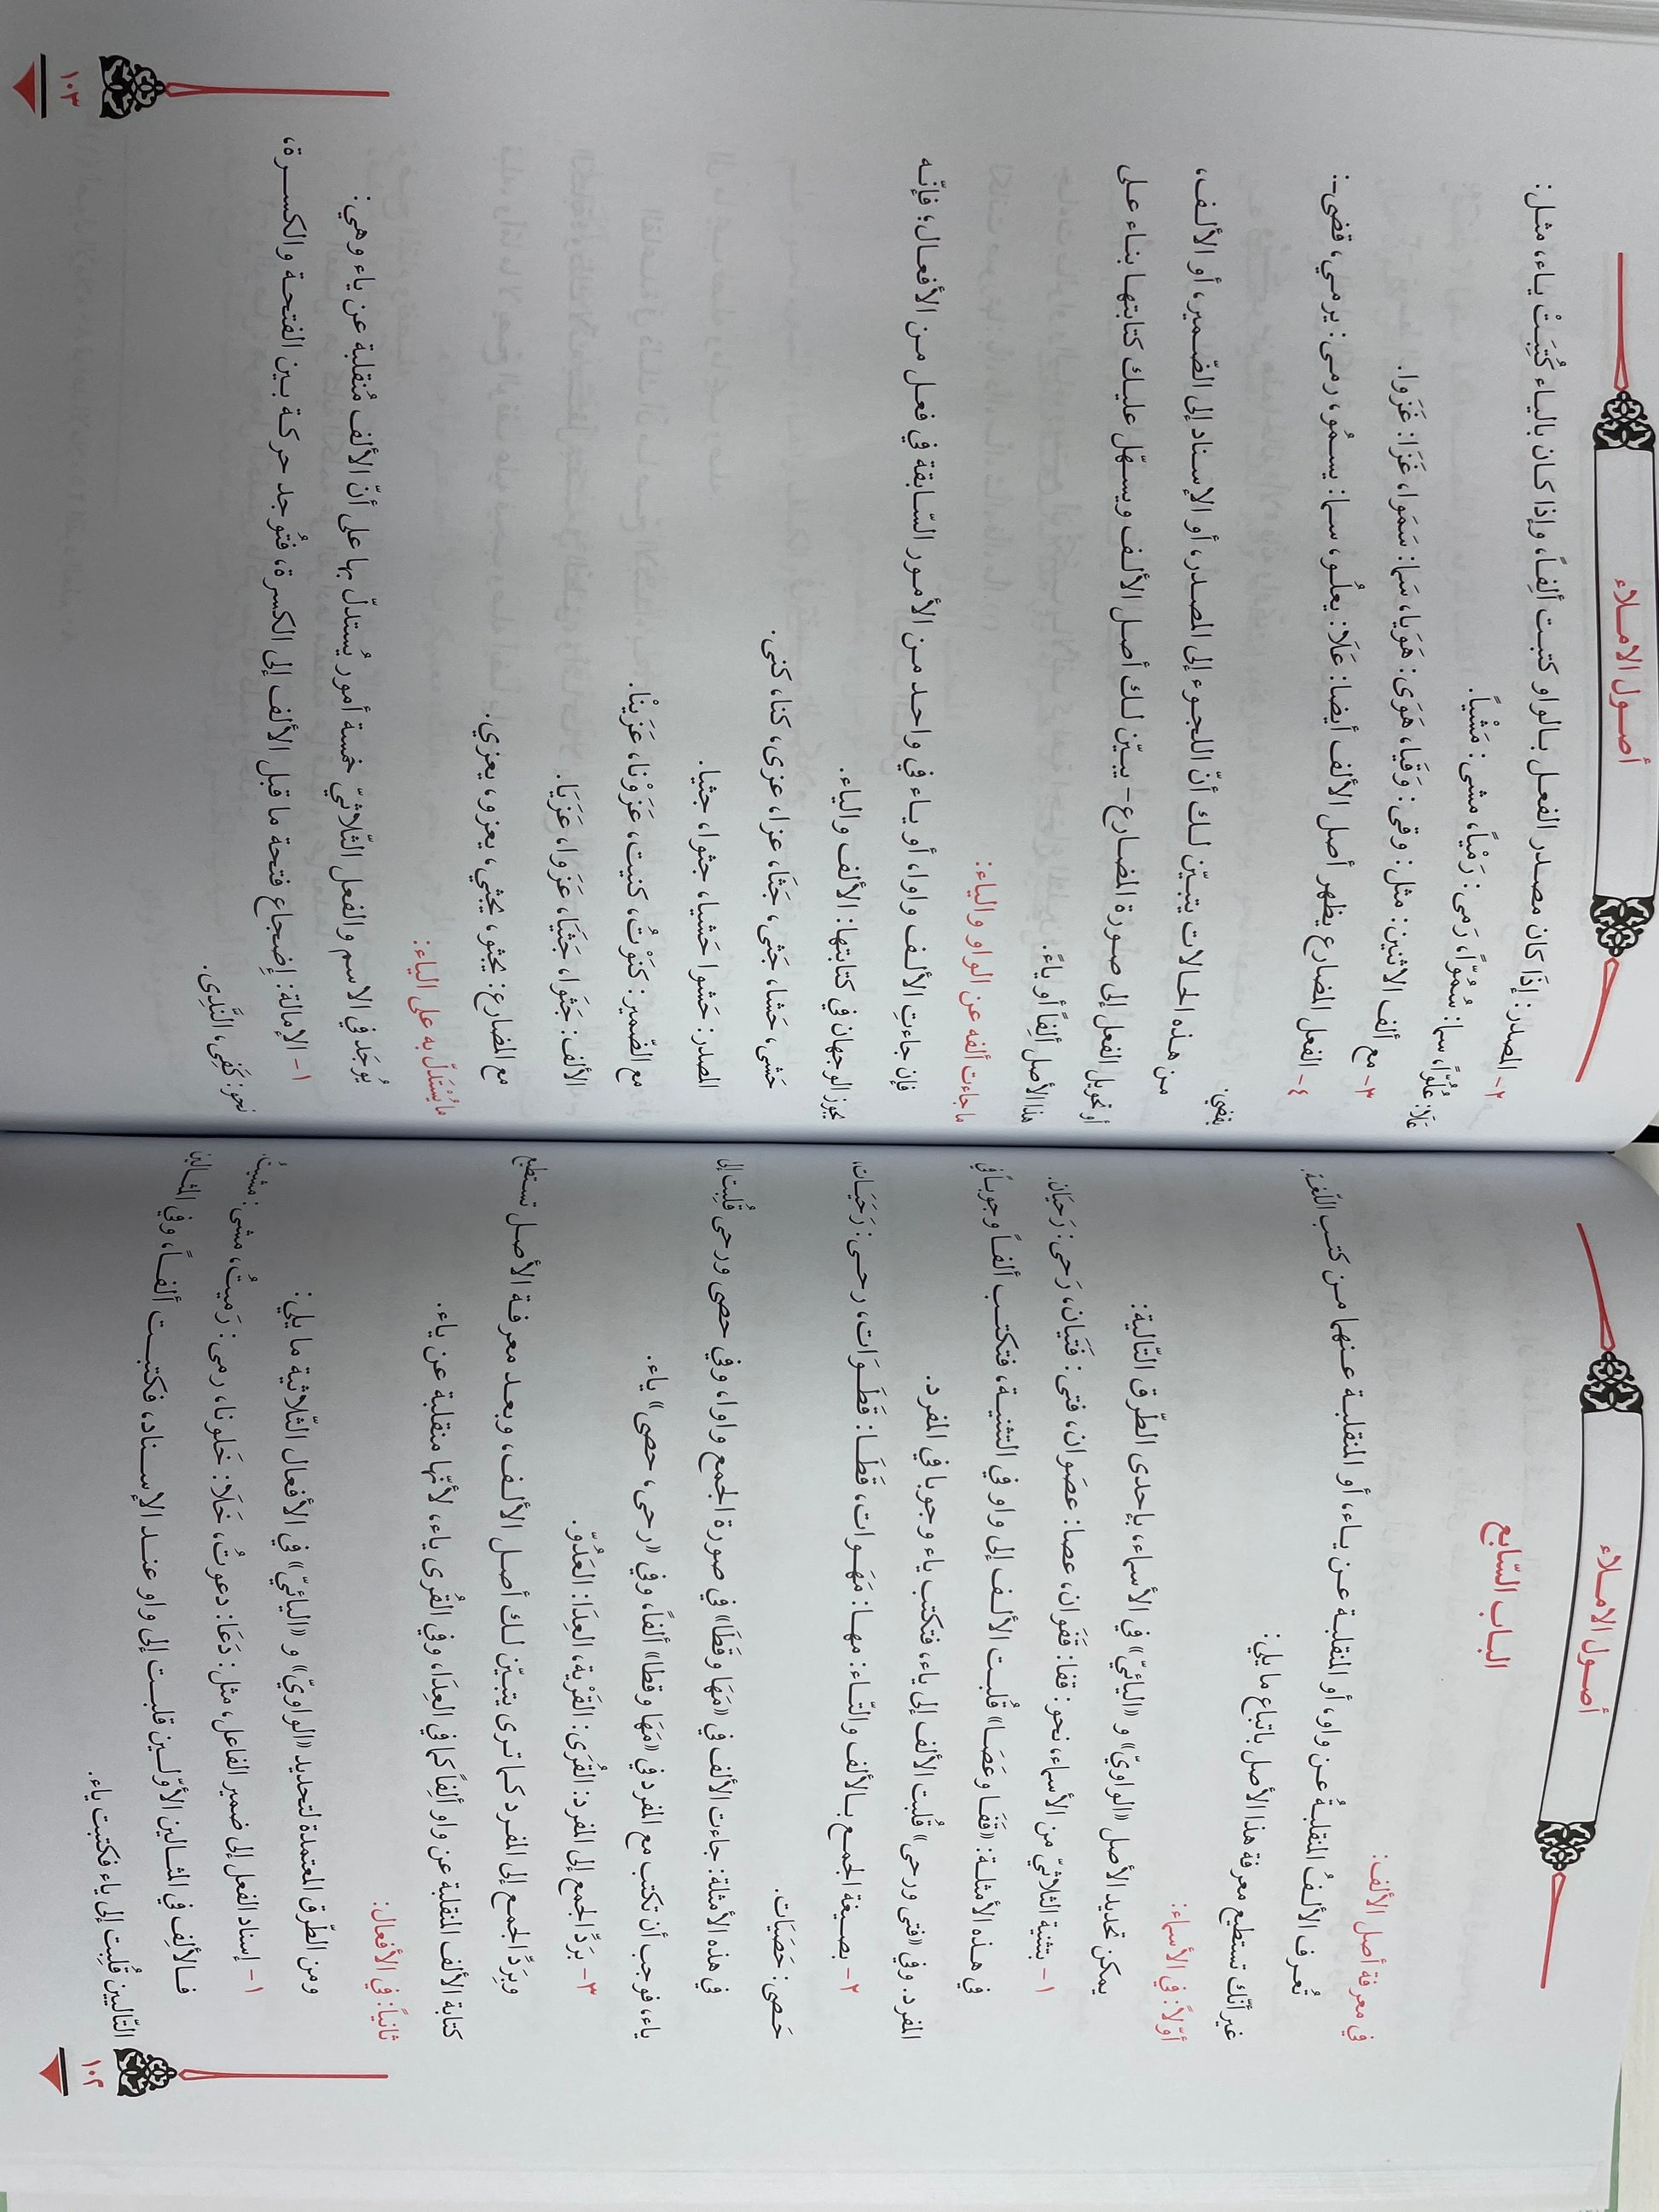 أصول الاملاء
الباب السّابع
في معرفة أصل الألف:
تُعرف الألفُ المنقلبةُ عن واو، أو المنقلبة عن ياء، أو المنقلبة عنهما من كتب اللّغة.
غير أنّك تستطيع معرفة هذا الأصل باتباع ما يلي:
أوّلاً: في الأسماء:
يمكن تحديد الأصل «الواويّ» و «اليائيّ» في الأسماء، بإحدى الطّرق التّالية:
١- بتثنية الثلاثيّ من الأسماء، نحو: قفا: قَفَوان، عصا: عصَوان، فتى: فَتَيان، رَحى: رَحَيَان.
في هذه الأمثلة: «قَفَا وعَصَا» قُلبت الألف إلى واو في التثنية، فتكتب ألفاً وجوباً في
المفرد. وفي «فتى ورحى» قُلبت الألف إلى ياء، فتكتب ياء وجوبا في المفرد.
٢- بصيغة الجمع بالألف والتّاء: مها: مَهَوات، قَطَا: قَطَوَات، رحى: رَحَيَات،
حَصى: حَصَيَات.
في هذه الأمثلة: جاءت الألف في «مَهَا وقَطَا» في صورة الجمع واوا، وفي حصى ورحى قُلِبت إلى
ياء، فوجب أن تكتب مع المفرد في «مَهَا وقطا» ألفاً، وفي «رحى، حصى» ياء.
٣- بَردِّ الجمع إلى المفرد: القُرَى: القَرْية، العِدَا: العَدُوّ.
وبِرَدِّ الجمع إلى المفرد كما ترى يتبيّن لك أصل الألف، وبعد معرفة الأصل تستطيع
كتابة الألف المنقلبة عن واو ألِفاً كما في العِدَا، وفي القُرى ياء، لأنّها منقلبة عن ياء.
ثانياً: في الأفعال:
ومن الطّرق المعتمدة لتحديد «الواويّ» و «اليائيّ» في الأفعال الثّلاثية ما يلي:
١- إسناد الفعل إلى ضمير الفاعل، مثل: دَعَا: دعوتُ، خَلَا: خَلونا، رمى: رَميتُ، مشى: مشيتُ،
فالألِف في المثالين الأوّلين قلبت إلى واو عند الإسناد، فكتبت ألفاً، وفي المثالين
التّاليين قُلِبت إلى ياء فكتبت ياء.
١٠٢
أصول الاملاء
٢- المصدر: إذَا كان مصدر الفعل بالواو كتبت ألِفاً، وإذا كان بالياء كُتِبَتْ ياء، مثل:
عَلَا: عُلُوّاً، سما: سُمُوّاً، رَمى: رَمْياً، مشى: مَشْياً.
٣- مع ألف الاثنين: مثل: وقى: وَقَيا، هَوَى: هَوَيا، سَمَا: سَمَوا، غَزَا: غَزَوا.
٤- الفعل المضارع يظهر أصل الألف أيضا: عَلَا: يعلُو، سما: يسمُو، رمى: يرمي، قضى-:
يقضي.
من هذه الحالات يتبيّن لك أنّ اللجوء إلى المصدر، أو الإسناد إلى الضّمير، أو الألف،
أو تحويل الفعل إلى صورة المضارع- يبيّن لك أصل الألف ويسهّل عليك كتابتها بناء على
هذا الأصل ألِفاً أو ياءً.
ما جاءت ألفه عن الواو والياء:
فإن جاءتِ الألف واوا، أو ياء في واحد من الأمور السّابقة في فعل من الأفعال؛ فإنّه
يجوز الوجهان في كتابتها: الألف والياء.
حَشى، حَشا، جَثى، جَثَا، عزا، عزى، كنا، كنى.
المصدر: حَشوا حَشيا، جثوا، جثيا.
مع الضّمير: كَنَوْتُ، كنيت، عَزَوْنا، عَزَيْنا.
الألف: جَثَوا، جَثَيَا، عَزَوا، عَزَيَا.
مع المضارع: يجثو، يجثي، يعزو، يعزي.
ما يُسْتَدَلُّ به على الياء:
يُوجَد في الاسم والفعل الثّلاثيّ خمسة أمور يُستدلّ بها على أنّ الألف مُنقلبة عن ياء وهي:
١- الإمالة: إضجاع فتحة ما قبل الألف إلى الكسرة، فتُوجد حركة بين الفتحة والكسرة،
نحو: كَفِى، النَّدِى.
١٠٣